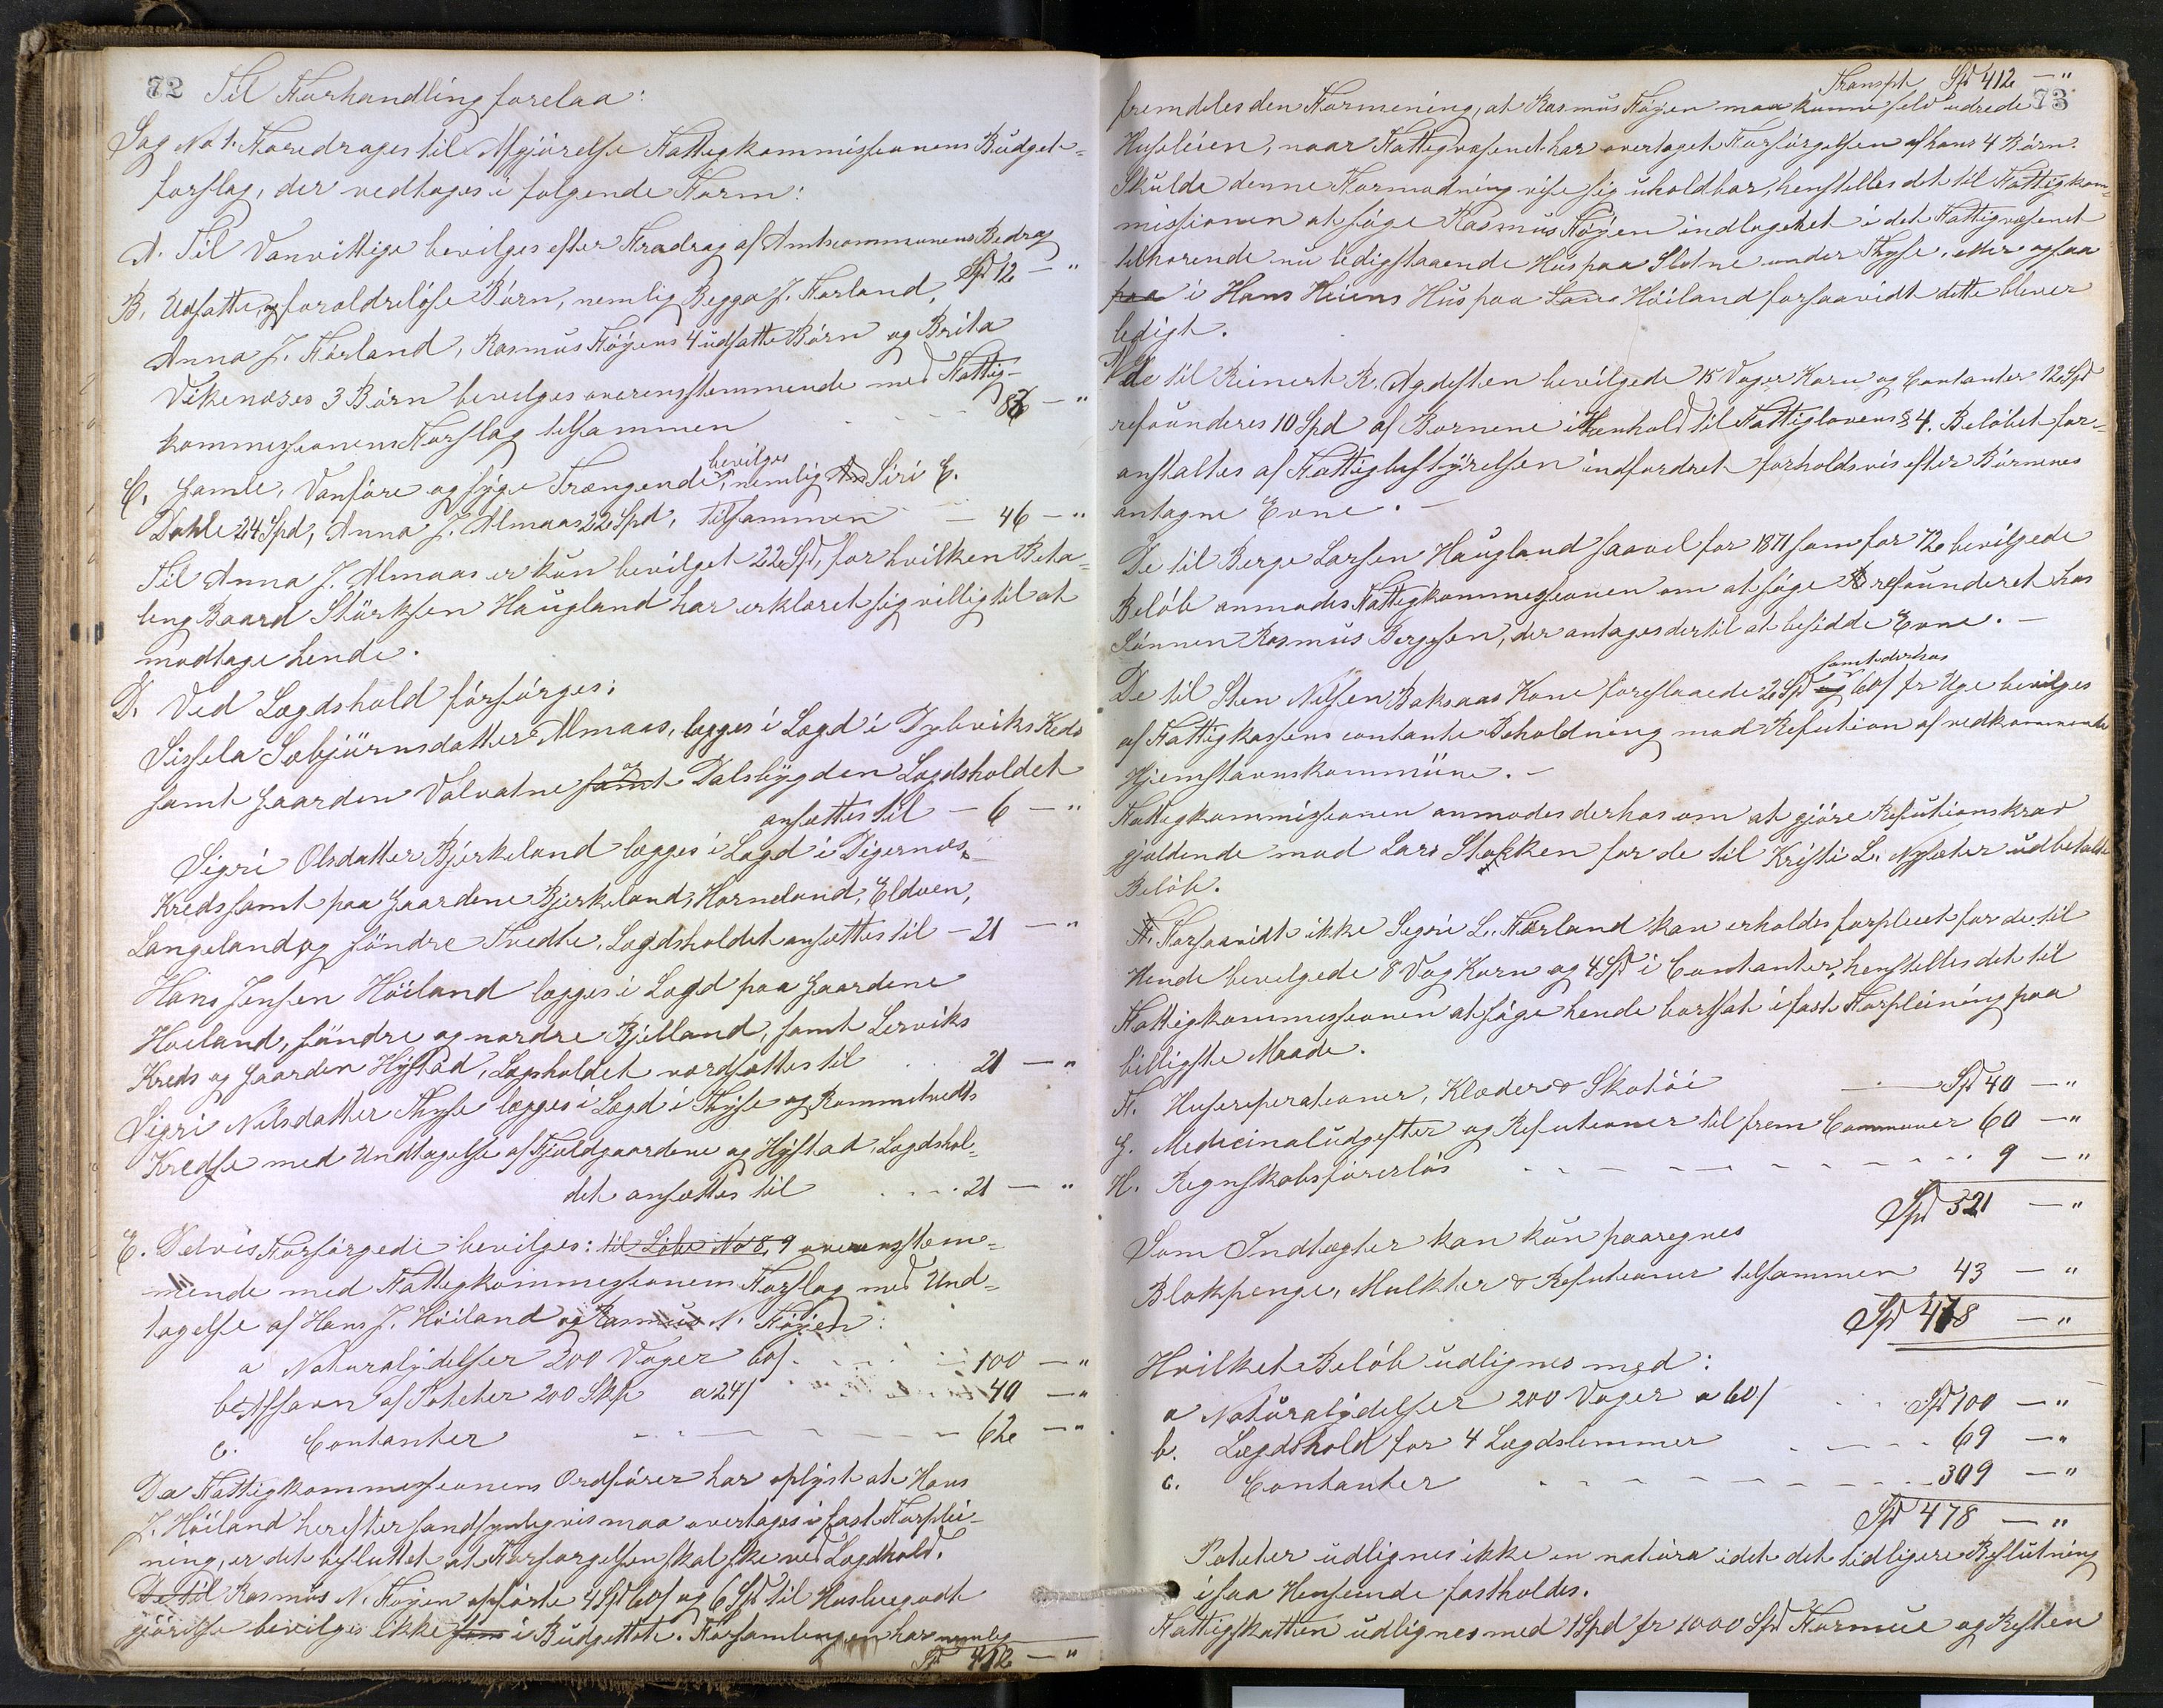 72 Til Forhandling forelaa:
Sag No 1. Foredrages til Afgjörelse Fattigkommissionens Budget-
forslag, der vedtages i følgende Form:
A. Til Vanvittige bevilges efter Fradrag af Amtscommunens Bedrag
Spd 12 — "
B. Udsatte og forældreløse Börn, nemlig Begga J. Førland,
Anna J. Førland, Rasmus Fögens 4 udsatte Börn og Brita
Vikenæses 3 Börn bevilges overensstemmende med Fattig-
kommissionens Forslag tilsammen - - - 83 — "
bevilges
C. Gamle, Vanföre og syge Trængende, nemlig An Siri E.
Dahle 24 Spd, Anna J. Almaas 22 Spd, tilsammen — 46 — "
Til Anna J. Almaas er kun bevilget 22 Spd, for hvilken Beta-
ling Baard Störksen Haugland har erklæret sig villig til at
modtage hende.
D. Ved Lægdshold försörges:
Sissela Sæbjörnsdatter Almaas, lægges i Lægd i Dybviks Kreds
samt Gaarden Valvatne samt og Dalsbygden Lægdsholdet
ansættes til — 6 — "
Sigri Olsdatter Bjerkeland lægges i Lægd i Digernæs
Kreds samt paa Gaardene Bjerkeland, Horneland, Eldøen,
Langeland og söndre Tvedte, Lægdsholdet ansættes til — 21 — "
Hans Jensen Höiland lægges i Lægd paa Gaardene
Höiland, söndre og nordre Bjelland, samt Lerviks
Kreds og Gaarden Hystad, Lægsholdet værdsættes til . . 21 — "
Sigri Nilsdatter Thyse lægges i Lægd i Thyse og Rommetvedts
Kredse med Undtagelse af Fjeldgaardene og Hystad, Lægdshol-
det ansættes til . . . . 21 — "
E. Delvis Forsörgede bevilges: til Löbe No 8, 9 overensstem-
mende med Fattigkommissionens Forslag med Und-
tagelse af Hans J. Höiland og Rasmus N. Fögen:
a Naturalydelser 200 Voger 60/ . . . . 100 — "
b. Afsavn af Poteter 200 Skp a 24/ . . . 40 — "
c. Contanter - - — — — — 62 — "
Da Fattigkommissionens Ordförer har oplyst at Hans
J. Höiland herefter sandsynligvis maa overtages i fast Forplei-
ning, er det besluttet at Forsorgelsen skal ske ved Lægdhold.
De til Rasmus N. Fögen opförte 4 Spd 60/ og 6 Spd til Husleiegodt
gjörelse bevilges ikke som i Budgettet. Forsamlingen har nemlig
Spd 412 — "
Transpt Spd 412 — "
73
fremdeles den Formening, at Rasmus Fögen maa kunne selv udrede
Husleien, naar Fattigvæsenet har overtaget Forsörgelsen af hans 4 Börn.
Skulde denne Formodning vise sig uholdbar, henstilles det til Fattigkom-
missionen at söge Rasmus Fögen indlogeret i det Fattigvæsenet
tilhørende nu ledigstaaende Hus paa Sletne under Thyse, eller ogsaa
paa i Hans Heiens Hus paa Höiland forsaavidt dette bliver
ledigt.
De til Reinert R. Agdesten bevilgede 15 Voger Korn og Contanter 12 Spd
refunderes 10 Spd af Börnene i Henhold til Fattiglovens § 4. Belöbet for-
anstaltes af Fattigbestyrelsen indfordret forholdsvis efter Börnenes
antagne Evne. —
De til Berge Larsen Haugland saavel for 1871 som for 72 bevilgede
Belöb anmodes Fattigkommissionen om at söge refunderet hos
Sönnen Rasmus Bergesen, der antages dertil at besidde Evne. —
samt derhos
De til Sten Nilsen Boksaas Kone foreslaaede 2 Spd og 60/ pr Uge bevilges
af Fattigkassens contante Beholdning mod Refution af vedkommende
Hjemstavnskommune. —
Fattigkommissionen anmodes derhos om at gjöre Refutionskrav
gjældende mod Lars Stokken for de til Kristi L. Nysæter udbetalte
Belöb.
Forsaavidt ikke Segri L. Førland kan erholdes forpleiet for de til
Hende bevilgede 8 Vog Korn og 4 Spd i Contanter, henstilles det til
Fattigkommissionen at söge hende bortsat i fast Forpleining paa
billigste Maade.
F. Husreperationer, Klæder & Skotöi — — Spd 40 — "
G. Medicinaludgifter og Refutioner til frem Communer 60 — "
H. Regnskabsförerlön - - — — - - - - 9 — "
Spd 521 — "
Som Indtægter kan kun paaregnes
Blokpenge, Mulkter & Refutioner tilsammen 43 — "
Spd 478 — "
Hvilket Belöb udlignes med:
a Naturalydelser 200 Voger a 60/ . . Spd 100 — "
b. Lægdshold for 4 Lægdslemmer . — - - 69 — "
c. Contanter - - - — — — - - 309 — "
Spd 478 — "
Poteter udlignes ikke in natura idet det tidligere Beslutning
i saa Henseende fastholdes.
Fattigskatten udlignes med 1 Spd pr 1000 Spd Formue og Resten